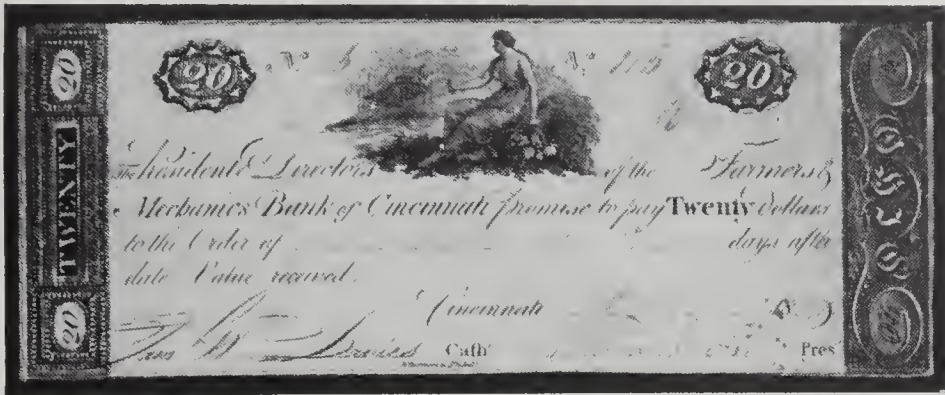 20 20 20
TWENTY
The President & Directors of the Farmers &
Mechanics Bank of Cincinnati promise to pay Twenty Dollars
to the Order of days after
date Value received.
Cincinnati
Cash Pres
20
OHIO